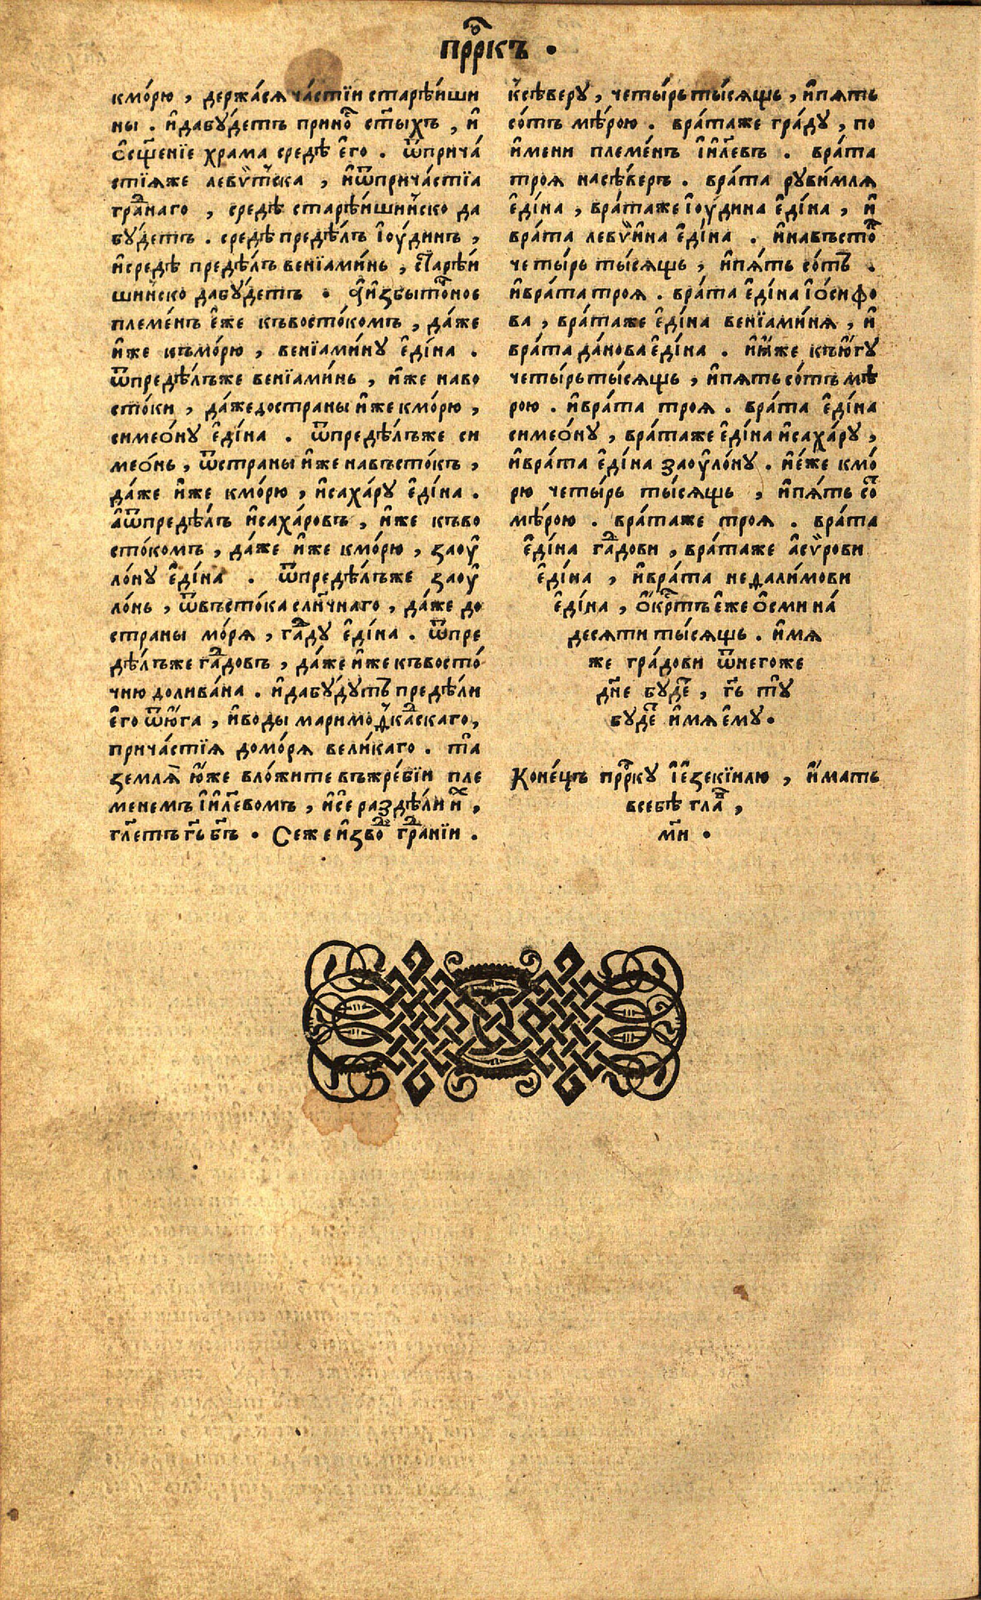 прⷪ҇ркъ ·
кмо́рю , держа́сѧ ча́стїи старѣ́иши
ны . и҆дабу́детъ приноⷭ҇ ст҃ыхъ , и҆
ѡ҆сщ҃енїе храма средѣ е҆го . ѿприча́
стїѧже левѵ́тска , и҆ѿприча́стїа
граⷣнаго , средѣ старѣ́ишиньско да
бу́детъ . средѣ предѣ́лъ і҆оу́динъ ,
и҆средѣ предѣ́лъ венїами́нь , старѣ́и
шиньско дабу́детъ · а҆и҆збытоⷱ҇ное
племе́нъ е҆же къвосто́комъ , да́же
и҆же къмо́рю , венїами́ну е҆ди́на .
ѿпредѣ́лъже венїами́нь , и҆же наво
сто́ки , да́жедостраны и҆же кмо́рю ,
симео́ну е҆ди́на . ѿпредѣ́лъже си
мео́нь , ѿстраны и҆же навъсто́къ ,
да́же и҆же кмо́рю , и҆саха́ру е҆ди́на .
а҆ѿпредѣ́лъ и҆саха́ровъ , и҆же къво
сто́комъ , да́же и҆же кмо́рю , заоу҆
ло́ну е҆ди́на . ѿпредѣ́лъже заоу҆
ло́нь , ѿвъсто́ка слн҃чнаго , да́же до
страны мо́рѧ , гаⷣду е҆ди́на . ѿпре
дѣ́лъже гаⷣдовъ , да́же и҆же къвосто́
чню долива́на . и҆дабу́дутъ предѣли
е҆го ѿю҆га , и҆воды маримоⷣкаⷣскаго ,
прича́стїѧ домо́рѧ вели́каго . т҃а
землѧ̀ ю҆же вло́жите въжре́бїи пле
менемъ і҆и҃левомъ , и҆се́ раздѣ́ли и҆ⷯ ,
гл҃етъ гь҃ бг҃ъ · Сеже и҆звоⷣ граⷣнїи .
к҆сѣ́веру , четы́рьты́сѧщь , и҆пѧ́ть
со́тъ мѣ́рою . вра́таже гра́ду , по
и҆мени племе́нъ і҆и҃левъ . вра́та
троѧ насѣ́веръ . вра́та руви́млѧ
е҆ди́на , вра́таже і҆оу́дина е҆ди́на , и҆
вра́та левѵ́и҆на е҆ди́на . и҆навъстоⷦ҇
четы́рь ты́сѧщь , и҆пѧ́ть со́тъ .
и҆вра́та троѧ . вра́та е҆ди́на і҆о́сифо
ва , вра́таже е҆ди́на венїами́нѧ , и҆
вра́та да́нова е҆ди́на . и҆и҆́же къю҆́гу
четы́рьты́сѧщь , и҆пѧ́ть со́тъ мѣ
рою . и҆вра́та троѧ . вра́та е҆ди́на
симео́ну , вра́таже е҆ди́на и҆саха́ру ,
и҆вра́та е҆ди́на заоу҆ло́ну . и҆е́же кмо́
рю четы́рь ты́сѧщь , и҆пѧ́ть соⷮ
мѣ́рою . вра́таже троѧ . вра́та
е҆ди́на гаⷣдови , вра́таже а҆сѵ́рови
е҆ди́на , и҆вра́та неⷴдали́мови
е҆ди́на , ѻ҆́крⷭ҇тъ е҆же ѻ҆́сми на́
десѧти ты́сѧщь . и҆мѧ
же гра́дови ѿнегоже
дн҃е будеⷮ , гь҃ т҃у
будеⷮ и҆мѧ е҆му ·
Коне́ць прⷪ҇рку і҆е҆зекїилю , и҆́мать
всебѣ́ глаⷡ҇ ,
м҃и ·